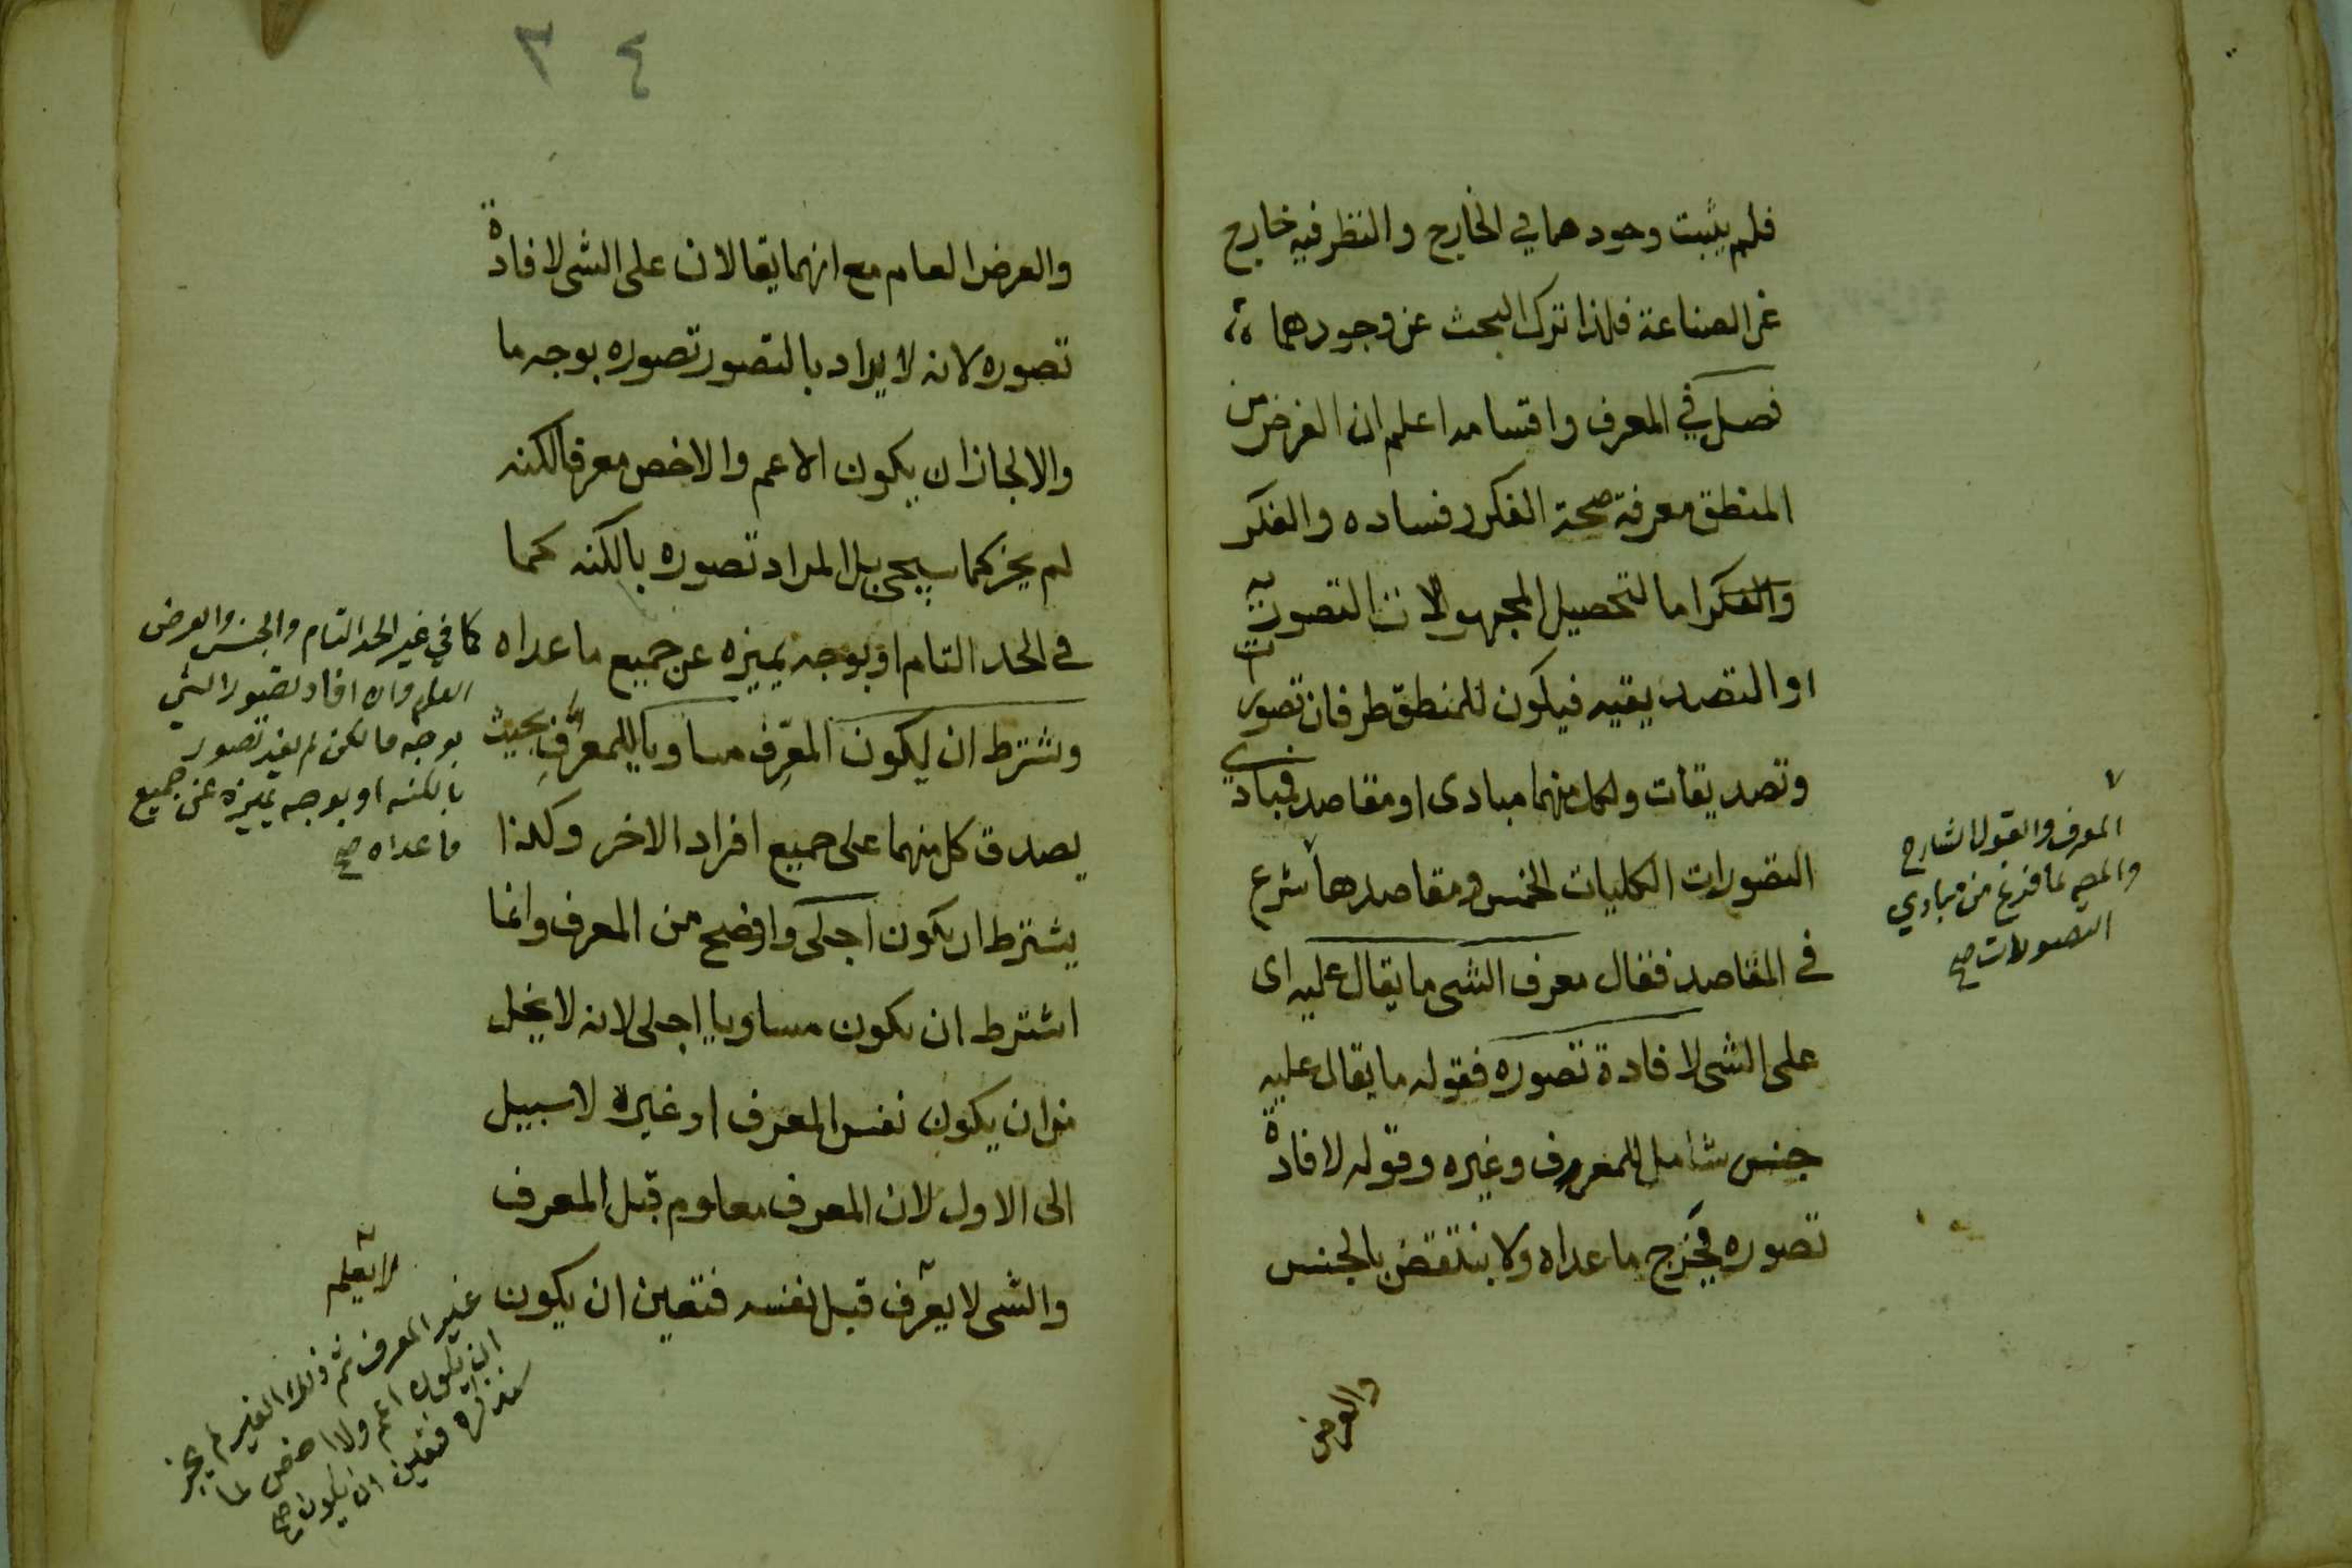 فلم يثبت وجودهما في الخارج والنظر فيه خارج
عن الصناعة فلهذا ترك البحث عن وجودهما
فصل في المعرف واقسامه اعلم ان الغرض من
المنطق معرفة صحة الفكر وفساده والفكر
والفكر اما لتحصيل المجهولات التصورية
او التصديقيه فيكون للمنطق طرفان تصورات
وتصديقات ولكل منهما مبادى او مقاصد فمبادي
التصورات الكليات الخمس ومقاصدها شرع
في المقاصد فقال معرف الشى ما يقال عليه اى
على الشى لافادة تصوره فقوله ما يقال عليه
جنس شامل للمعرف وغيره وقوله لافادة
تصوره فيخرج ما عداه ولا ينتقض بالجنس
والعرض
المعرف والقول الشارح
والمصـ لما فرغ من مبادي
التصورات صح
٣٤
والعرض العام مع انهما يقالان على الشى لافادة
تصوره لانه لا يراد بالتصور تصوره بوجه ما
والا لجاز ان يكون الاعم والاخص معرفا لكنه
لم يجز كما سيجى بل المراد تصوره بالكنه كما
في الحد التام او بوجه يميزه عن جميع ما عداه
ويشترط ان يكون المعرِف مساويا للمعرَف بحيث
يصدق كل منهما على جميع افراد الاخر وكذا
يشترط ان يكون اجلى واوضح من المعرف وانما
اشترط ان يكون مساويا اجلى لانه لا يخل
من ان يكون نفس المعرف او غيره لا سبيل
الى الاول لان المعرف معلوم قبل المعرف
والشى لا يعرف قبل نفسه فتعين ان يكون
كما في غير الحد التام والجنس والعرض
العام وان افاد تصور الشي
بوجه ما لكن لم يفد تصور
بالكنه او بوجه يميزه عن جميع
ما عداه صح
لا يعلم
غير المعرف ثم ذلك الغير لم يجز
ان يكون اعم ولا اخص لما
سنذكره فتعين ان يكون صح